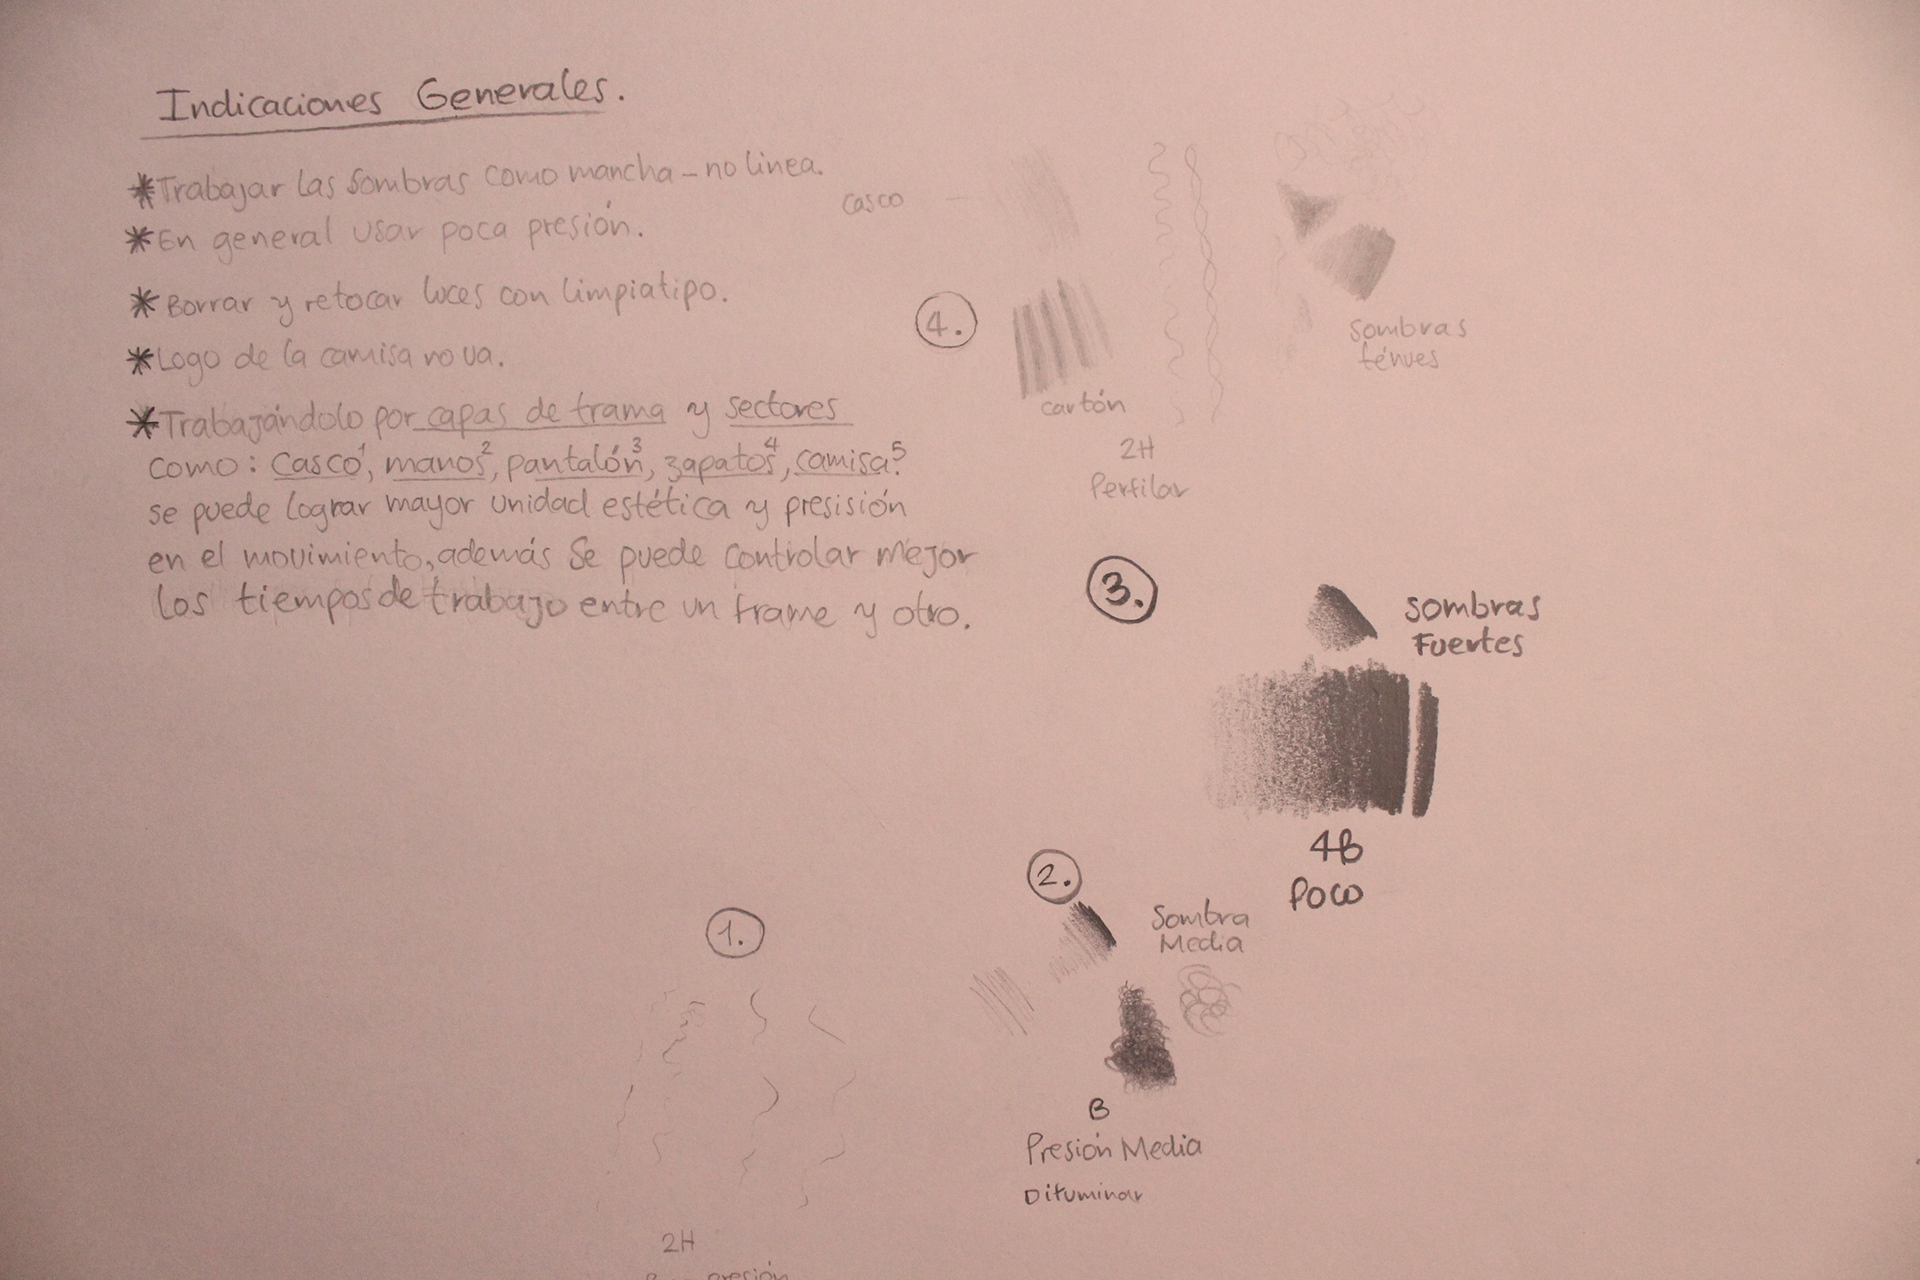 Indicaciones Generales.
*Trabajar las sombras como mancha - no linea.
*En general usar poca presión.
*Borrar y retocar luces con limpiatipo.
*Logo de la camisa no va.
*Trabajándolo por capas de trama y sectores
como: casco¹, manos², pantalón³, zapatos⁴, camisa⁵.
se puede lograr mayor unidad estética y presisión
en el movimiento, además se puede controlar mejor
los tiempos de trabajo entre un frame y otro.
casco -
4.
cartón
2H
Perfilar
sombras
ténues
3.
sombras
Fuertes
4B
Poco
2.
Sombra
Media
B
Presión Media
Difuminar
1.
2H
presión